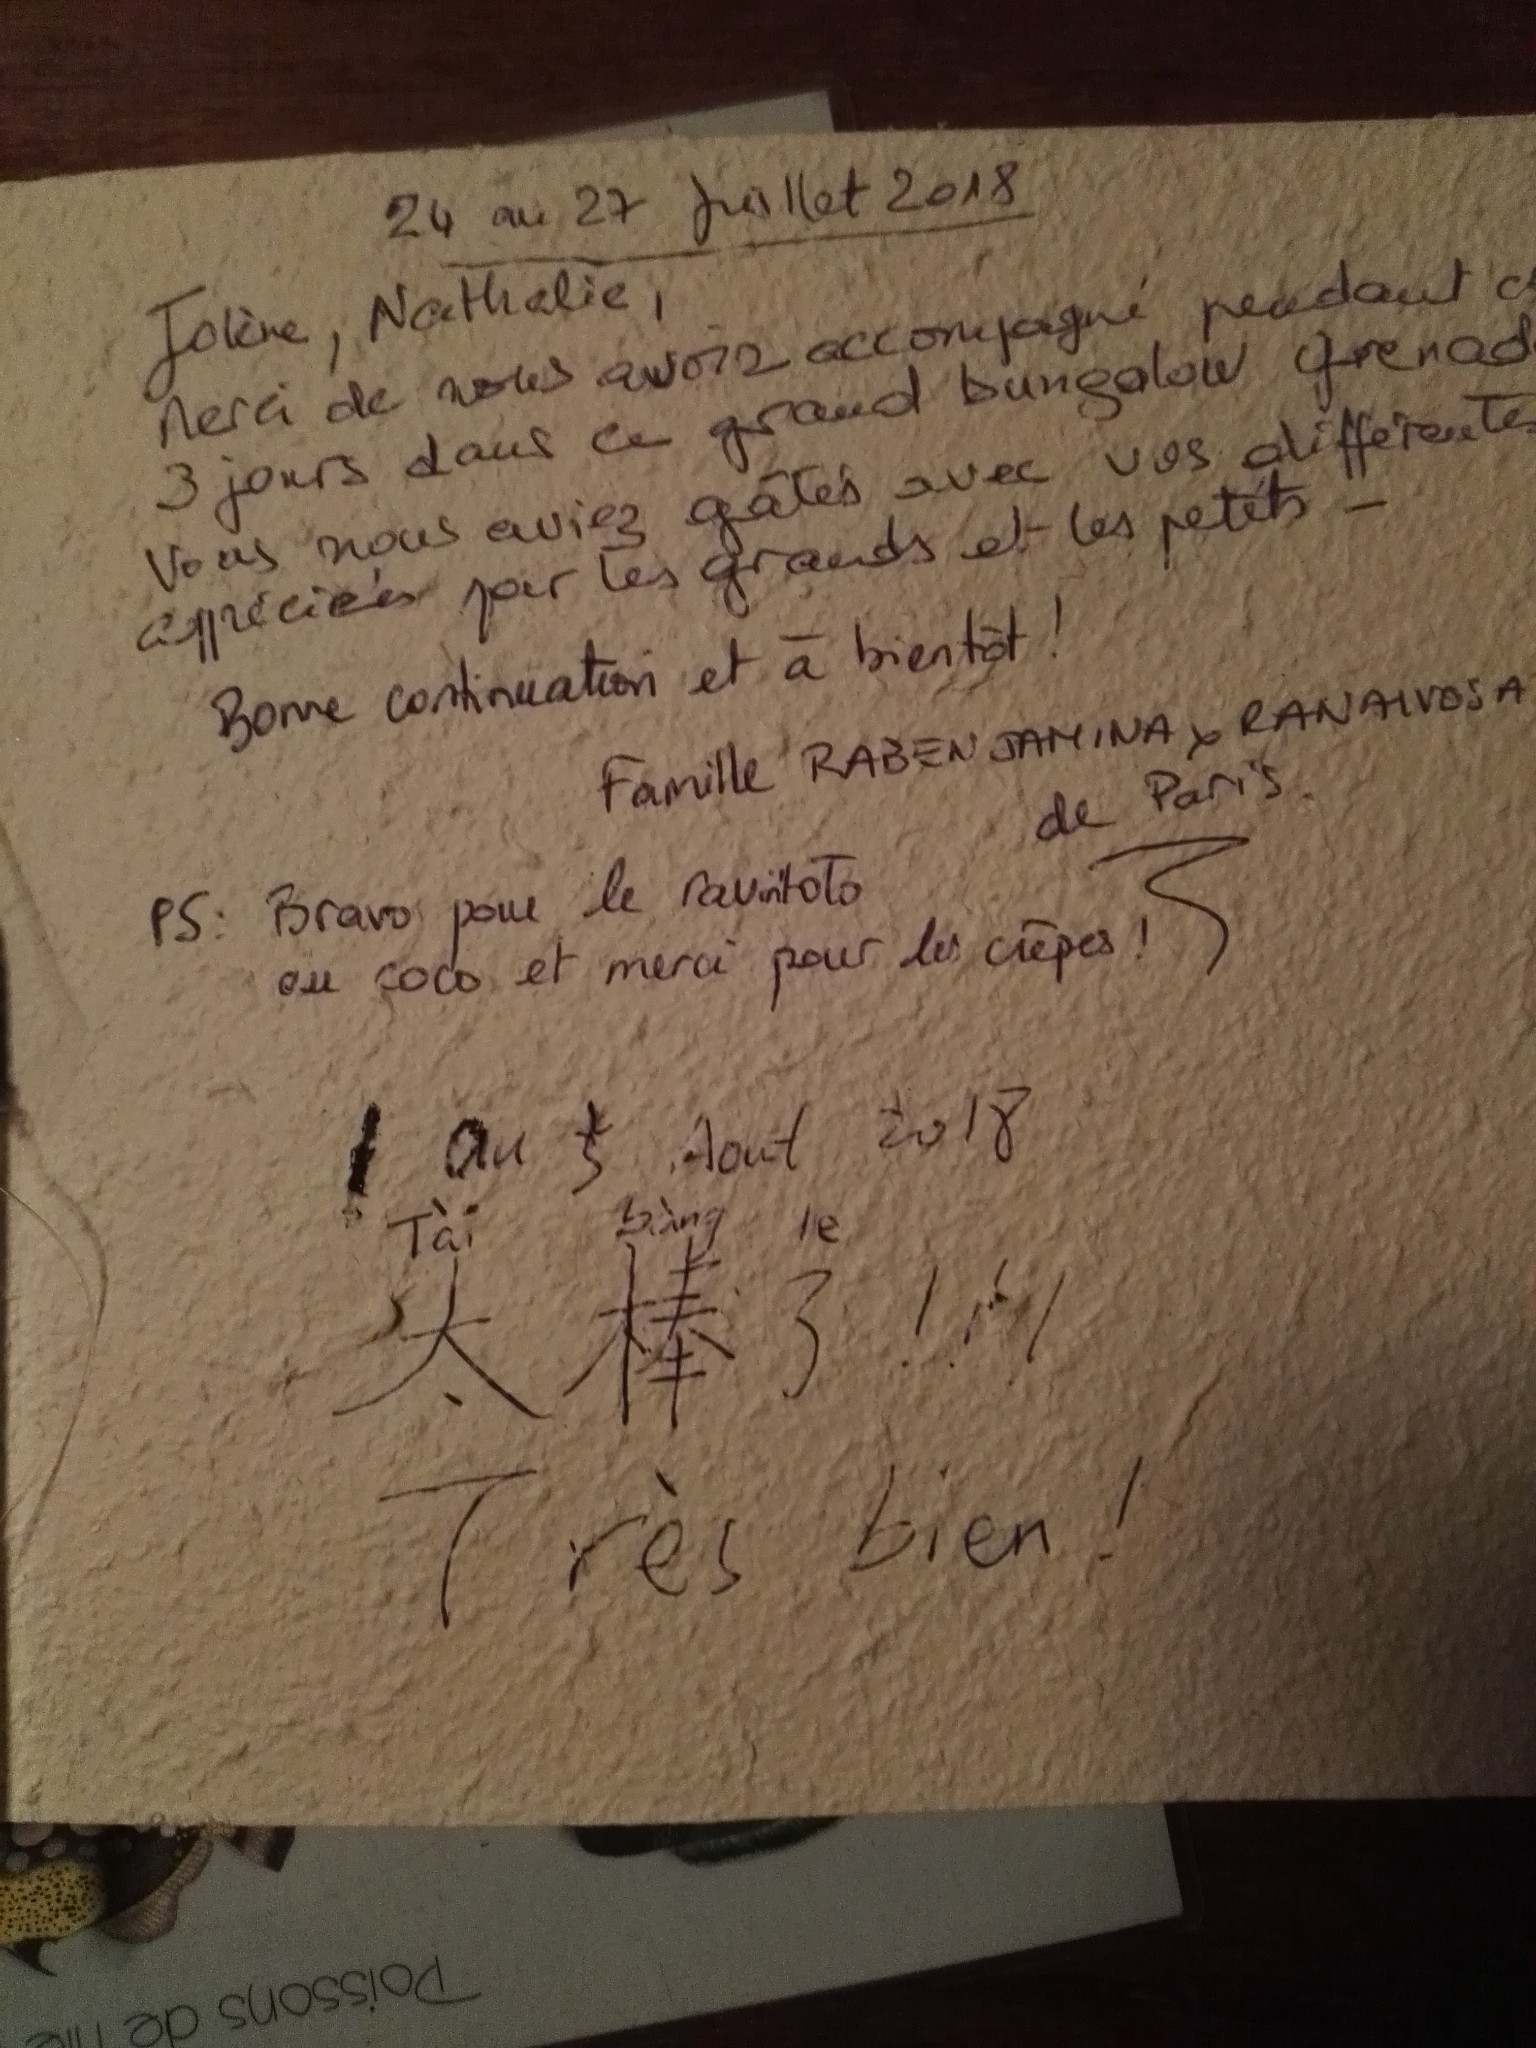 24 au 27 Juillet 2018
Jolène, Nathalie,
Merci de nous avoir accompagné pendant
3 jours dans ce grand bungalow Grenad
Vous nous aviez gâtés avec vos différentes
appréciées par les grands et les petits -
Bonne continuation et à bientôt !
Famille RABENJAMINA x RANAIVOSA
de Paris.
PS: Bravo pour le ravintoto
au coco et merci pour les crêpes !
1 au 5 Aout 2018
Tài bàng le
太棒了!!!
Très bien !
Poissons de